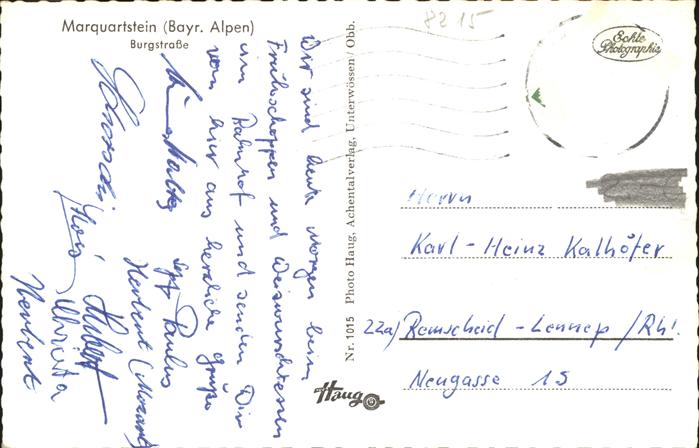 Marquartstein (Bayr. Alpen)
Burgstraße
8215
Echte
Photographie
Wir sind heute Morgen beim
Frühschoppen und Weiswurschtessen
im Bahnhof und senden Dir
von hier aus herzliche Grüße
Sepp Paulus
Herbert
Hubert
Christa
Herbert
Nr. 1015 Photo Haug, Achentalverlag, Unterwössen/Obb.
Haug
Herrn
Karl-Heinz Kalhöfer
22a) Remscheid-Lennep/Rhl.
Neugasse 15